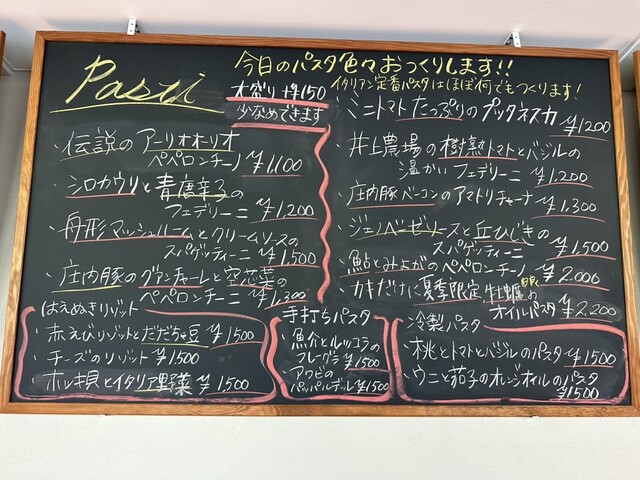 Pasti
今日のパスタ色々おつくりします!!
大盛り↑¥150
少なめできます
イタリアン定番パスタはほぼ何でもつくります!
・伝説のアーリオオーリオ
ペペロンチーノ ¥1,100
・シロカウリと青唐辛子の
フェデリーニ ¥1,200
・舟形マッシュルームとクリームソースの
スパゲッティーニ ¥1,500
・庄内豚のグアンチャーレと空芯菜の
ペペロンチーニ ¥1,300
・ミニトマトたっぷりのプッタネスカ
¥1200
・井上農場の樹熟トマトとバジルの
温かいフェデリーニ ¥1,200
・庄内豚ベーコンのアマトリチャーナ
¥1,300
・ジェノベーゼソースと丘ひじきの
スパゲティーニ ¥1,500
・鮎とみょがのペペロンチーノ
¥2.000
・カキだけ〈夏季限定 牡蠣の
オイルパスタ ¥2.200
はえぬきリゾット
・赤えびリゾットとだだちゃ豆 ¥1500
・チーズのリゾット ¥1500
・ホッキ貝とイタリア野菜 ¥1500
手打ちパスタ
・魚介とルッコラの
フレーグラ ¥1500
・アワビの
パッパルデッレ ¥1500
冷製パスタ
・桃とトマトとバジルのパスタ ¥1500
・ウニと茄子のオレンジオイルのパスタ
¥1500